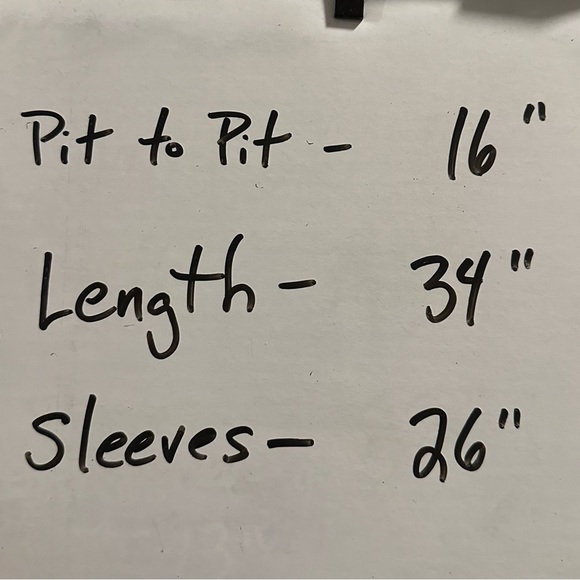 Pit to Pit - 16"
Length - 34"
Sleeves - 26"